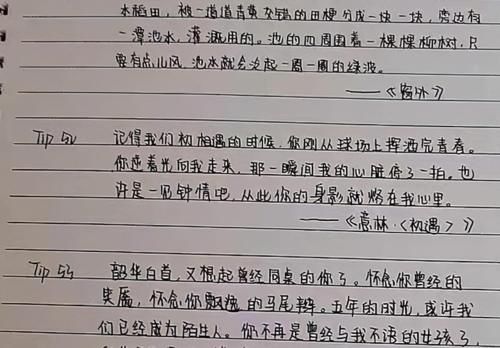 木稻田，被一道道青黄交错的田埂分成一块一块，旁边有
一潭池水，灌溉用的。池的四周围着一棵棵柳树，只
要有点儿风，池水就会支起一圈一圈的绿波。
——《窗外》
Tip 52 记得我们初相遇的时候，你刚从球场上挥洒完青春。
你逆着光向我走来，那一瞬间我的心脏停了一拍。也
许是一见钟情吧，从此你的身影就烙在我心里。
——《意林·<初遇>》
Tip 53 韶华白首，又想起曾经同桌的你了。怀念你曾经的
笑靥，怀念你飘逸的马尾辫。五年的时光，或许我
们已经成为陌生人。你不再是曾经与我不语的女孩了，